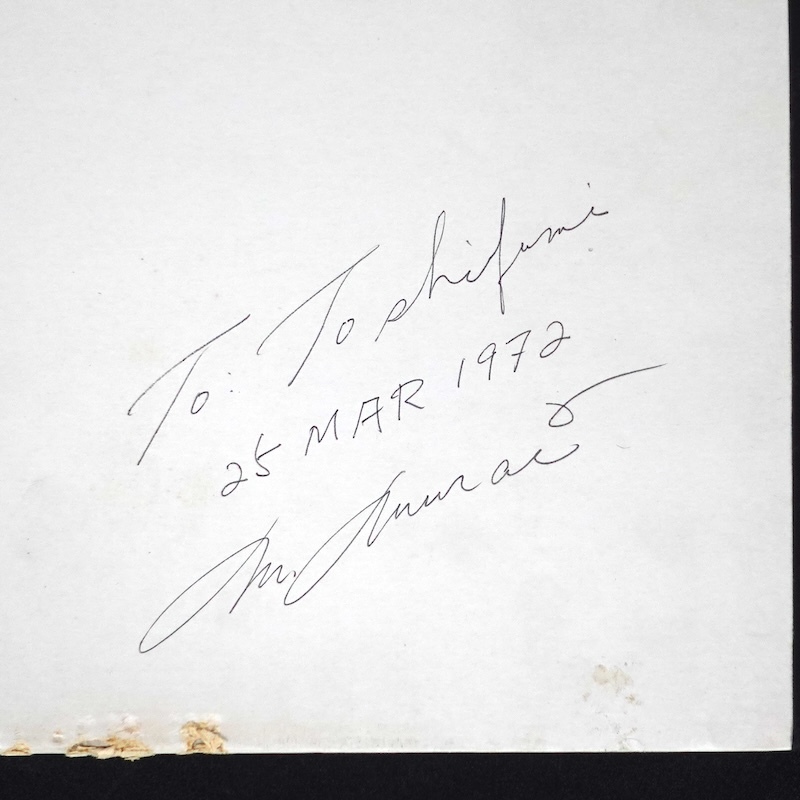 To: Toshifumi
25 MAR 1972
M. Murai